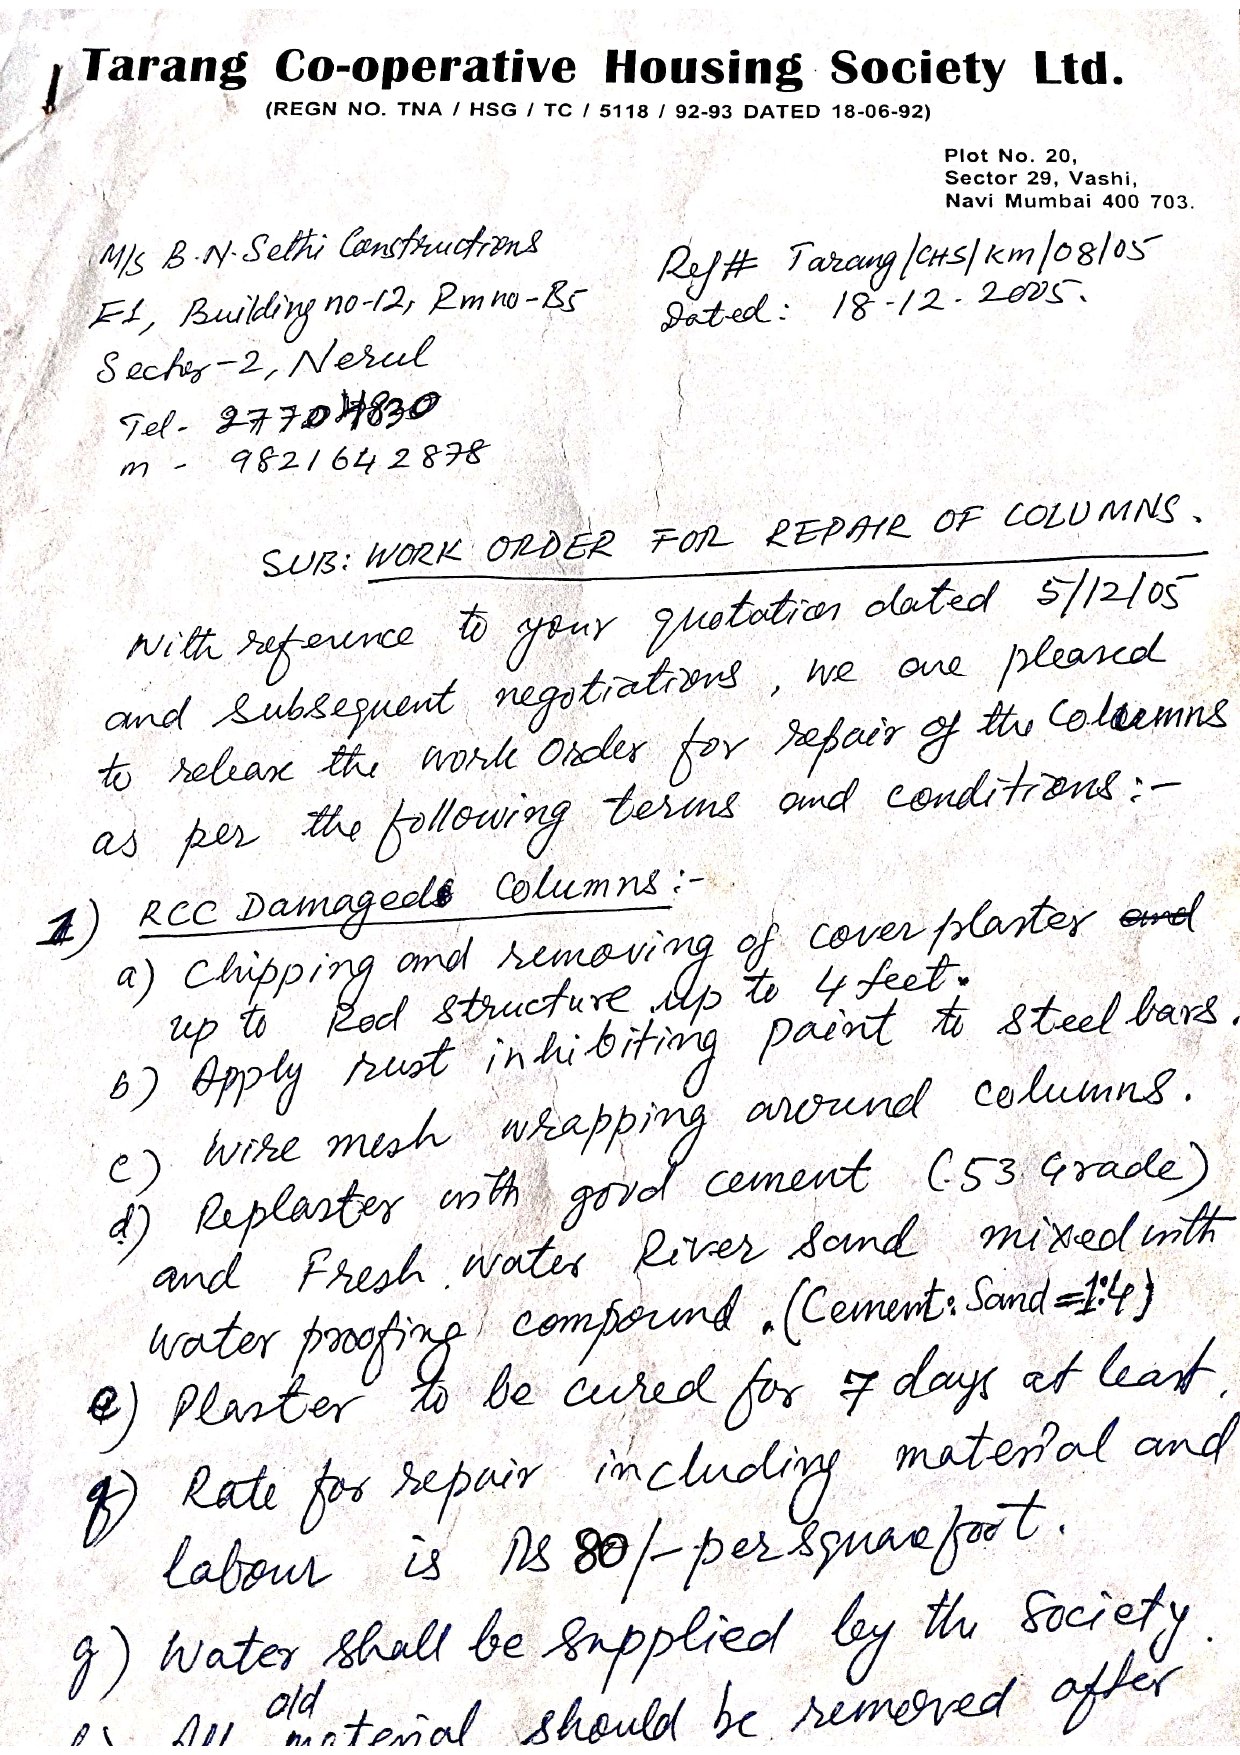 Tarang Co-operative Housing Society Ltd.
(REGN NO. TNA / HSG / TC / 5118 / 92-93 DATED 18-06-92)
Plot No. 20,
Sector 29, Vashi,
Navi Mumbai 400 703.
M/s B.N. Sethi Constructions
E1, Building no-12, Rm no-B5
Sector-2, Nerul
Tel- 27704830
m - 9821642878
Ref# Tarang/CHS/KM/08/05
Dated: 18-12-2005.
SUB: WORK ORDER FOR REPAIR OF COLUMNS.
With reference to your quotation dated 5/12/05
and subsequent negotiations, we are pleased
to release the work order for repair of the Columns
as per the following terms and conditions:-
1) RCC Damaged Columns:-
a) Chipping and removing of cover plaster and
up to Rod structure up to 4 feet.
b) Apply rust inhibiting paint to steel bars.
c) Wire mesh wrapping around columns.
d) Replaster with good cement (53 Grade)
and Fresh water River sand mixed with
water proofing compound. (Cement: Sand = 1:4)
e) Plaster to be cured for 7 days at least.
f) Rate for repair including material and
labour is Rs 80/- per square foot.
g) Water shall be supplied by the Society.
h) All old material should be removed after